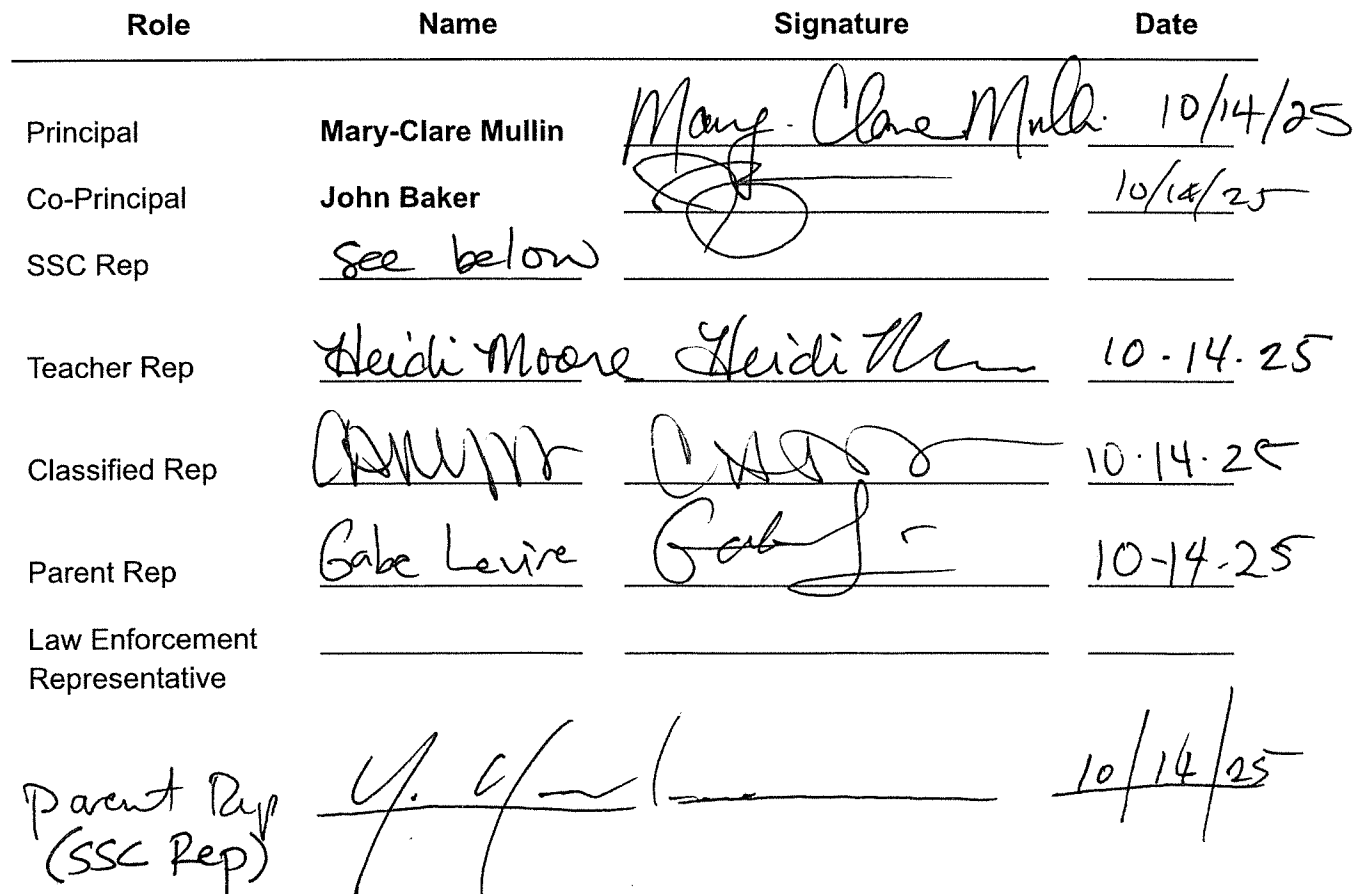 Role Name Signature Date
Principal Mary-Clare Mullin Mary-Clare Mulli 10/14/25
Co-Principal John Baker 10/14/25
SSC Rep See below
Teacher Rep Heidi Moore Heidi 10-14-25
Classified Rep 10.14.25
Parent Rep Gabe Levine Gabe 10-14-25
Law Enforcement
Representative
Parent Rep 10/14/25
(SSC Rep)